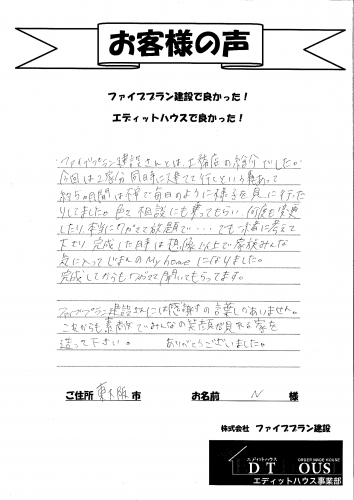 お客様の声
ファイブプラン建設で良かった！
エディットハウスで良かった！
ファイブプラン建設さんとは、工務店の紹介でした。
今回は2家分同時に建てて行くという事あって
約5ヵ月間は 毎日のように様子を見に行った
りしてました。色々相談にも乗ってもらい、何度も変更
したり、本当にワガママ放題で・・・でも一緒に考えて
下さり完成した時は想像以上で家族みんな
気に入って じまんのMy homeになりました。
完成してからもワガママ聞いてもらってます。
ファイブプラン建設さんには感謝の言葉しかありません。
これからも素敵でみんなの笑顔が見れる家を
造って下さい。 ありがとうございました。
ご住所 東大阪 市 お名前 N 様
株式会社 ファイブプラン建設
エディットハウス ORDER MADE HOUSE
D T OUS
エディットハウス事業部